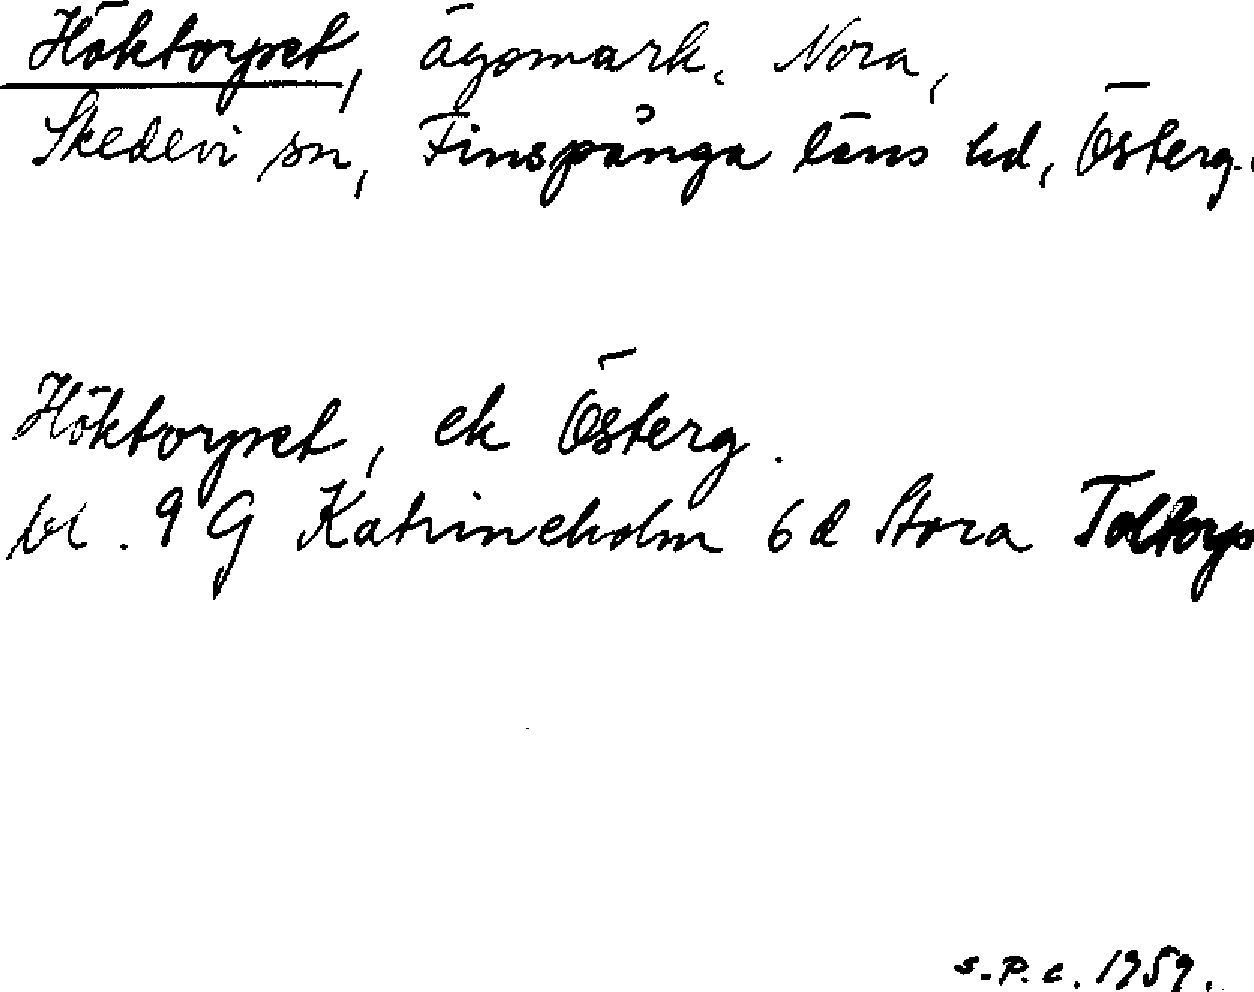 Höktorpet, ägomark, Nora,
Skedevi sn, Finspånga läns hd, Österg.
Höktorpet, ek Österg.
bl. 9 G Katrineholm 6 d Stora Toltorp
S.P.C. 1959.